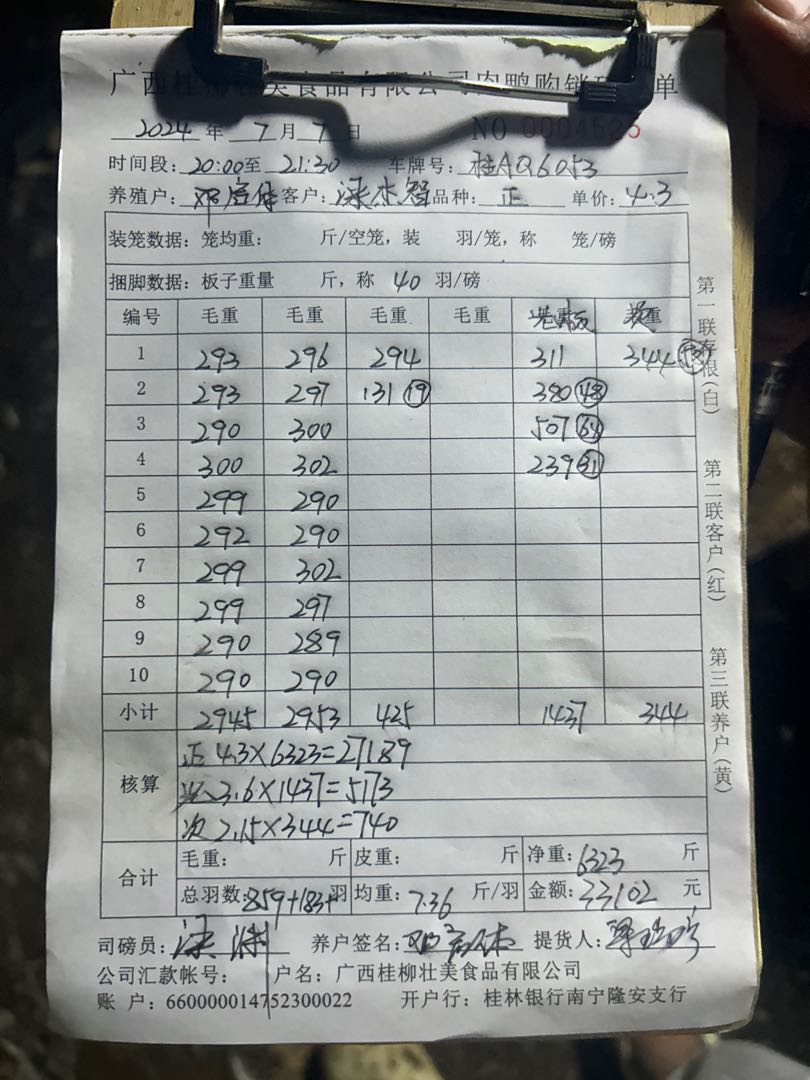 广西桂柳壮美食品有限公司肉鸭购销 单
2024 年 7 月 7 日 NO 0004525
时间段: 20:00 至 21:30 车牌号: 桂AQ6053
养殖户: 客户: 品种: 正 单价: 4.3
装笼数据: 笼均重: 斤/空笼, 装 羽/笼, 称 笼/磅
捆脚数据: 板子重量 斤, 称 40 羽/磅
编号 毛重 毛重 毛重 毛重 重
1 293 296 294 311 344
2 293 297 131 19 380 48
3 290 300 507
4 300 302 239 31
5 299 290
6 292 290
7 299 302
8 299 297
9 290 289
10 290 290
小计 2945 2953 425 1437 344
核算
正 4.3×6323=27189
3.6×1437=5173
次 2.15×344=740
合计
毛重: 斤 皮重: 斤 净重: 6323 斤
总羽数: 859+183+ 羽 均重: 7.36 斤/羽 金额: 33102 元
司磅员: 养户签名: 提货人:
公司汇款帐号: 户名: 广西桂柳壮美食品有限公司
账 户: 660000014752300022 开户行: 桂林银行南宁隆安支行
第一联存根(白)
第二联客户(红)
第三联养户(黄)